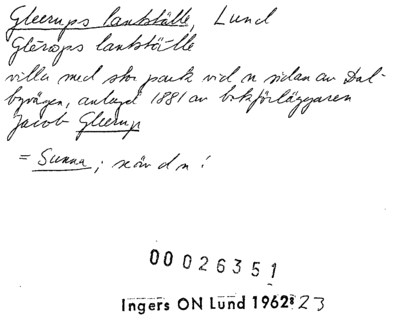 Gleerups lantställe, Lund
Glērops lantstä̀lle
villa med stor park vid n sidan av Dal-
byvägen, anlagd 1881 av bokförläggaren
Jacob Gleerup
= Sunna; se ö d n!
00026351
Ingers ON Lund 1962 s 23